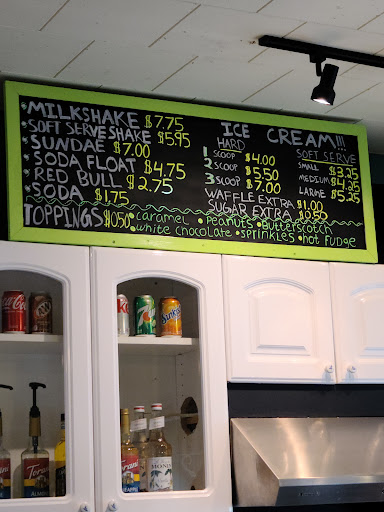 MILKSHAKE $7.75
SOFT SERVE SHAKE $5.95
SUNDAE $7.00
SODA FLOAT $4.75
RED BULL $2.75
SODA $1.75
ICE CREAM!!!
HARD
1 SCOOP $4.00
2 SCOOP $5.50
3 SCOOP $7.00
WAFFLE EXTRA $1.00
SUGAR EXTRA $0.50
SOFT SERVE
SMALL $3.25
MEDIUM $4.25
LARGE $5.25
TOPPINGS $0.50 • caramel • Peanuts • Butterscotch
• white chocolate • sprinkles • hot fudge
Coca-Cola
A&W
Sunkist
TORANI
TORANI
TORANI
MONIN